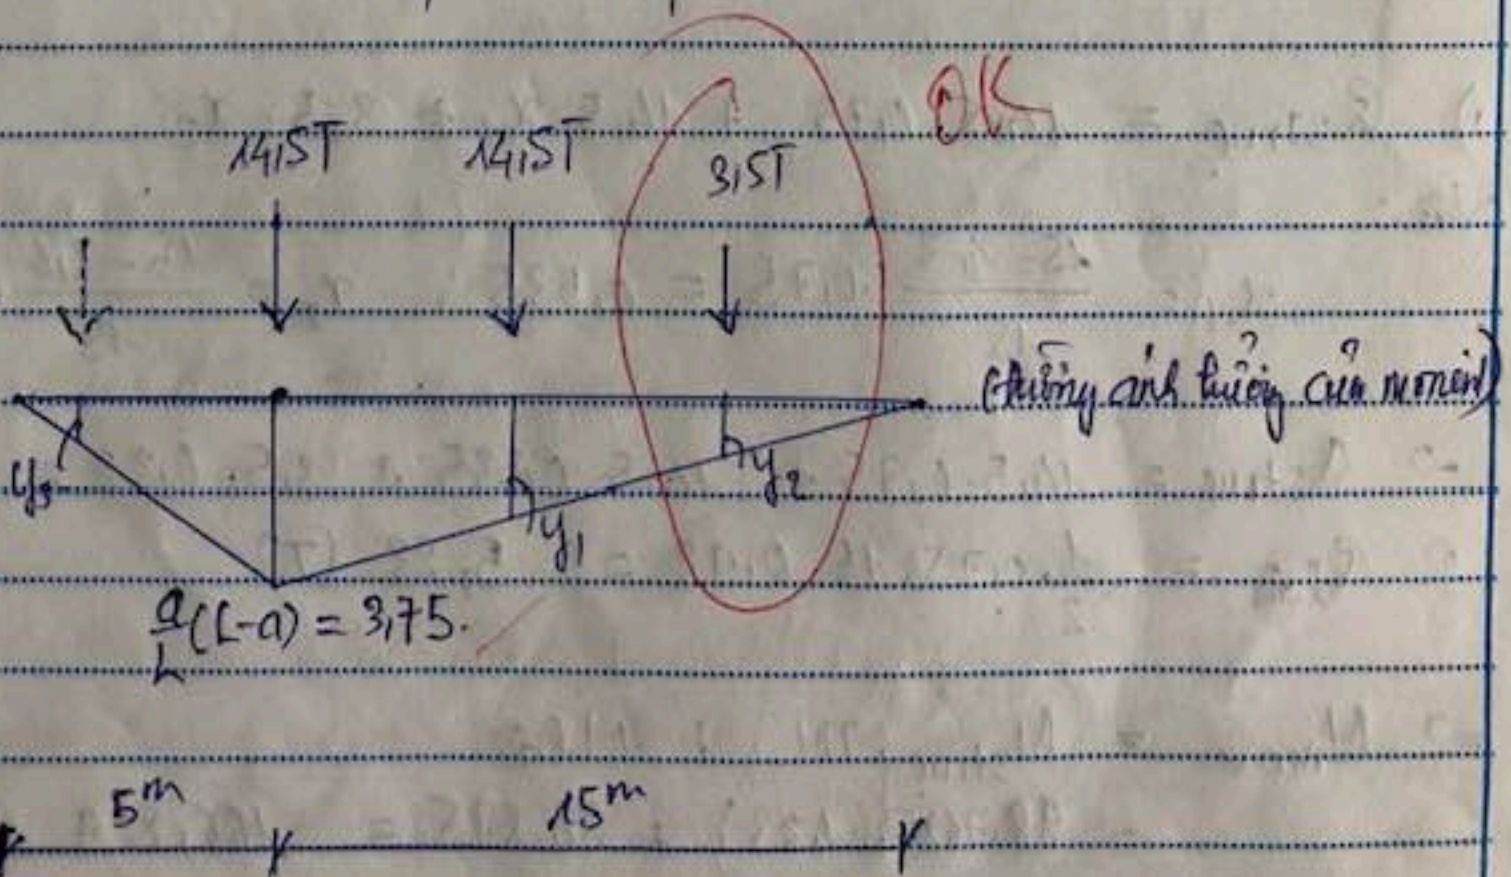 OK
14,5T 14,5T 3,5T
(đường ảnh hưởng của momen)
y3 y1 y2
a/L (L-a) = 3,75.
5m 15m